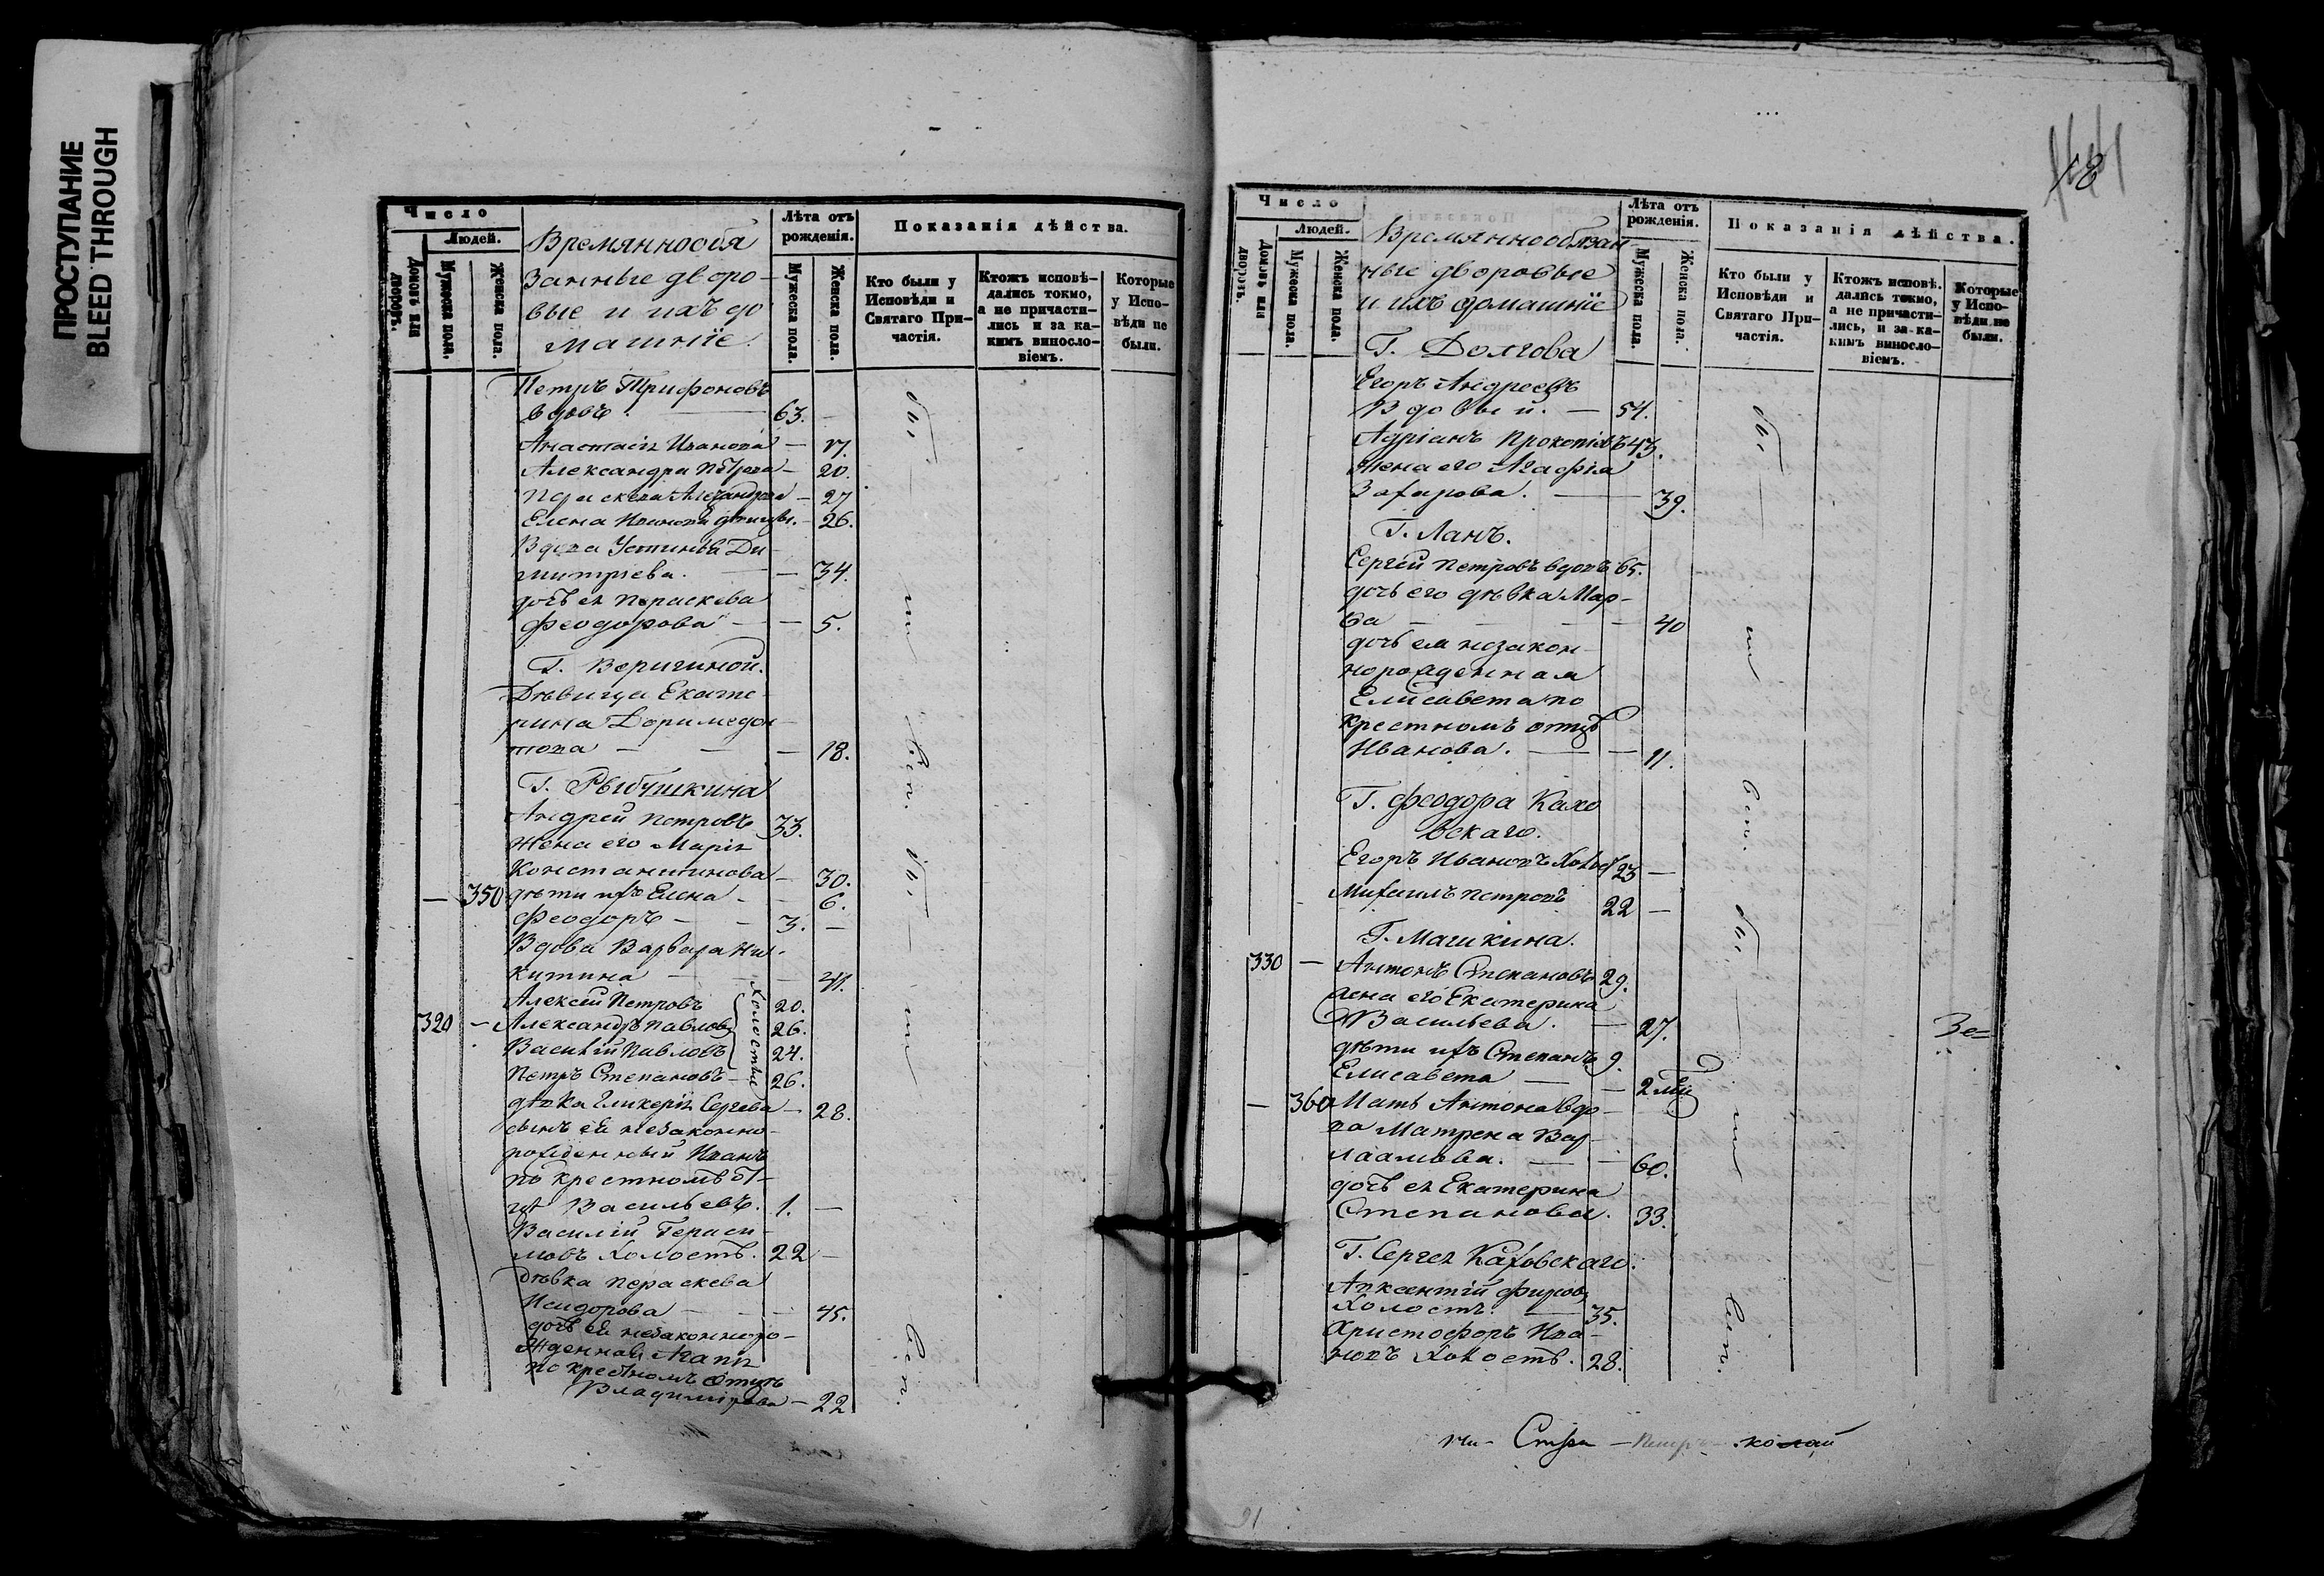 ПРОСТУПАНИЕ
BLEED THROUGH
Число
Людей.
Домовъ или дворовъ.
Мужеска пола.
Женска пола.
Времяннообя
занные дворо-
вые и ихъ до
машніе.
Лѣта отъ рожденія.
Мужеска пола.
Женска пола.
Показанія дѣйства.
Кто были у Исповѣди и Святаго Причастія.
Ктожъ исповѣдались токмо, а не причастились и за какимъ винословіемъ.
Которые у Исповѣди не были.
Петръ Трифоновъ
вдовъ. 63. —
Анастасія Иванова — 17.
Александра Петрова — 20.
Параскева — 27
Елена Иванова — 26.
Вдова Устинья Ди-
митріева. — 34.
дочь ея Параскева
Феодорова — — 5.
Г. Веригиной.
Дѣвица Екате-
рина Доримедон-
това — — — 18.
Г. Рыбушкина
Андрей Петровъ 33.
жена его Марія
Константинова — 30.
— 350 дѣти ихъ Елена — — 6.
Феодоръ — — 3. —
Вдова Варвара Ни-
китина — — 41.
Алексѣй Петровъ 20.
320 — Александръ Павловъ 26.
Василій Павловъ 24.
Петръ Степановъ — 26.
Холосты
дѣвка Гликерія Сергеева — 28.
сынъ ея незаконно-
рожденный Иванъ
по крестномъ От-
цѣ Васильевъ. 1. —
Василій Гераси-
мовъ холостъ. 22 —
Дѣвка Параскева
Исидорова — — — 45.
дочь ея незаконноро-
жденная Агапія
по крестномъ Отцѣ
Владимірова — 22
были — и — вси. были — и — вси.
181
Число
Людей.
Домовъ или дворовъ.
Мужеска пола.
Женска пола.
Времяннообязан
ные дворовые
и ихъ домашніе
Лѣта отъ рожденія.
Мужеска пола.
Женска пола.
Показанія дѣйства.
Кто были у Исповѣди и Святаго Причастія.
Ктожъ исповѣдались токмо, а не причастились, и за какимъ винословіемъ.
Которые у Исповѣди не были.
Г. Долгова
Егоръ Андреевъ
Вдовый. — 54.
Адріанъ Прокопіевъ 43.
жена его Агафія
Захарова. — 39.
Г. Ланъ.
Сергѣй Петровъ вдовъ 65.
дочь его дѣвка Мар-
ѳа — — — — 40
дочь ея незакон-
норожденная
Елисавета по
крестномъ отцѣ
Иванова. — — 11.
Г. Феодора Кахо
вскаго.
Егоръ Ивановъ холост 23 —
Михаилъ Петровъ 22 —
Г. Машкина.
330 — Антонъ Степановъ 29.
жена его Екатерина
Васильева. — 27.
дѣти ихъ Степанъ 9.
Елисавета — — 2
— 360 Мать Антона вдо-
ва Матрена Вар-
лаамова. — — 60.
дочь ея Екатерина
Степанова. 33.
Г. Сергея Каховскаго.
Авксентій
Холостъ. — 35.
Христофоръ Ива-
новъ холостъ. 28.
91